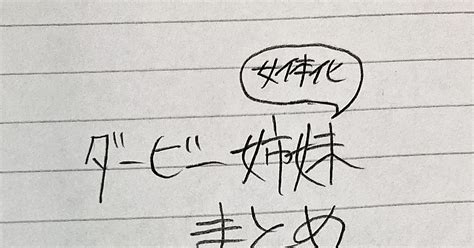 女体化
ダービー姉妹
まとめ